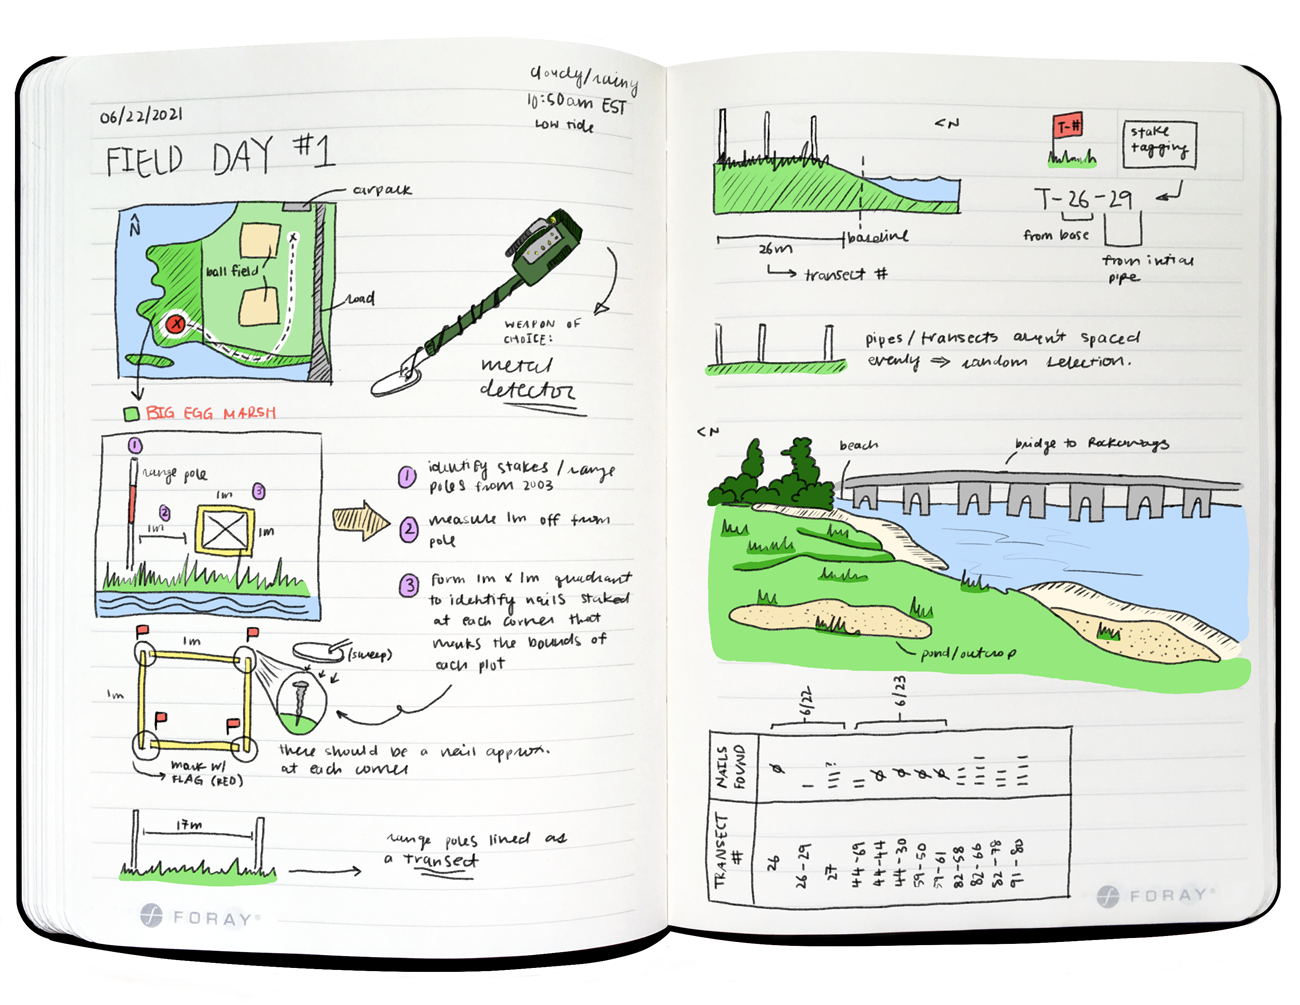 cloudy/rainy
10:50am EST
LOW tide
06/22/2021
FIELD DAY #1
carpark
N
ball field
road
X
WEAPON OF
CHOICE:
metal
detector
BIG EGG MARSH
1
range pole
1m
3
2
1m
1m
1 identify stakes / range
poles from 2003
2 measure 1m off from
pole
3 form 1m x 1m quadrant
to identify nails staked
at each corner that
marks the bounds of
each plot
1m
(sweep)
1m
there should be a nail approx.
at each corner
mark w/
FLAG (RED)
17m
range poles lined as
a transect
FORAY
<N
T-#
stake
tagging
T-26-29
from base
from initial
pipe
26m
baseline
transect #
pipes/transects aren't spaced
evenly ⇒ random selection.
<N
beach
bridge to Rockaways
pond/outcrop
6/22
6/23
NAILS
FOUND
Ø
I
III?
II
Ø
Ø
Ø
Ø
III
IIII
III
IIII
TRANSECT
#
26
26-29
27
44-69
44-44
44-30
59-50
59-61
82-58
82-66
82-78
91-80
FORAY